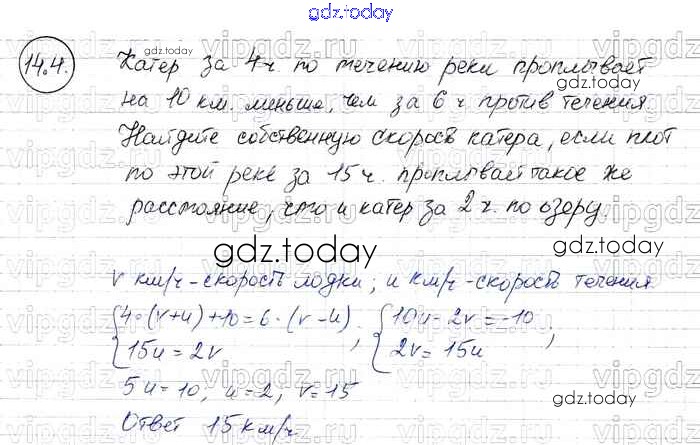 gdz.today
14.4.
Катер за 4 ч. по течению реки проплывает
на 10 км. меньше, чем за 6 ч против течения.
Найдите собственную скорость катера, если плот
по этой реке за 15 ч. проплывает такое же
расстояние, что и катер за 2 ч. по озеру.
gdz.today
v км/ч - скорость лодки; u км/ч - скорость течения
{4·(v+u)+10=6·(v-u) ; {10u-2v=-10 ;
15u=2v 2v=15u
5u=10, u=2, v=15
Ответ 15 км/ч.
gdz.today